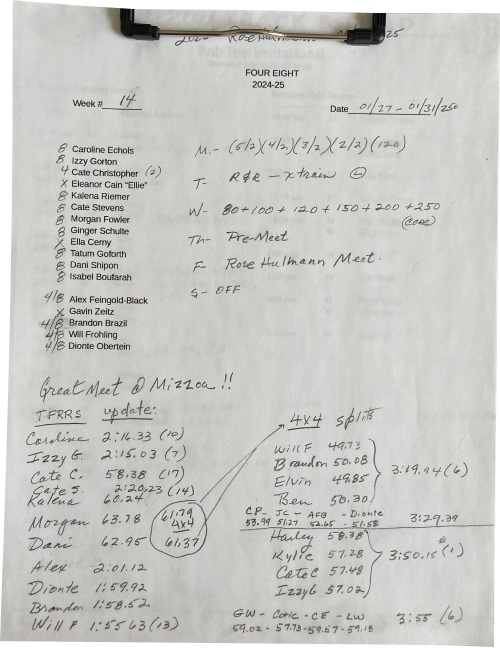 Rose Hulman 25
FOUR EIGHT
2024-25
Week # 14
Date 01/27 - 01/31/25
8 Caroline Echols
8 Izzy Gorton
4 Cate Christopher (2)
X Eleanor Cain "Ellie"
8 Kalena Riemer
8 Cate Stevens
8 Morgan Fowler
8 Ginger Schulte
X Ella Cerny
8 Tatum Goforth
8 Dani Shipon
8 Isabel Boufarah
4/8 Alex Feingold-Black
X Gavin Zeitz
4/8 Brandon Brazil
4/8 Will Frohling
4/8 Dionte Obertein
M.- (5/2)(4/2)(3/2)(2/2)(120)
T- R&R - xtrain
W- 80+100+120+150+200+250
(CORE)
Th- Pre-Meet
F- Rose Hulmann Meet.
S- OFF
Great Meet @ Mizzou !!
TFRRS update:
Caroline 2:16.33 (10)
Izzy G. 2:15.03 (7)
Cate C. 58.38 (17)
Cate S. 2:20.23 (14)
Kalena 60.24
Morgan 63.78
Dani 62.95
61.79
4x4
61.37
Alex 2:01.12
Dionte 1:59.92
Brandon 1:58.52
Will F 1:55.63 (13)
4x4 splits
Will F 49.73
Brandon 50.08
Elvin 49.85
Ben 50.30
3:19.94 (6)
CP - JC - AFB - Dionte
53.99 51.27 52.65 - 51.58
3:29.39
Hailey 58.38
Kylie 57.28
Cate C 57.48
Izzy G 57.02
3:50.15 (1)
GW - Coric - CE - LW
59.02 - 57.73 - 59.57 - 59.18
3:55 (6)